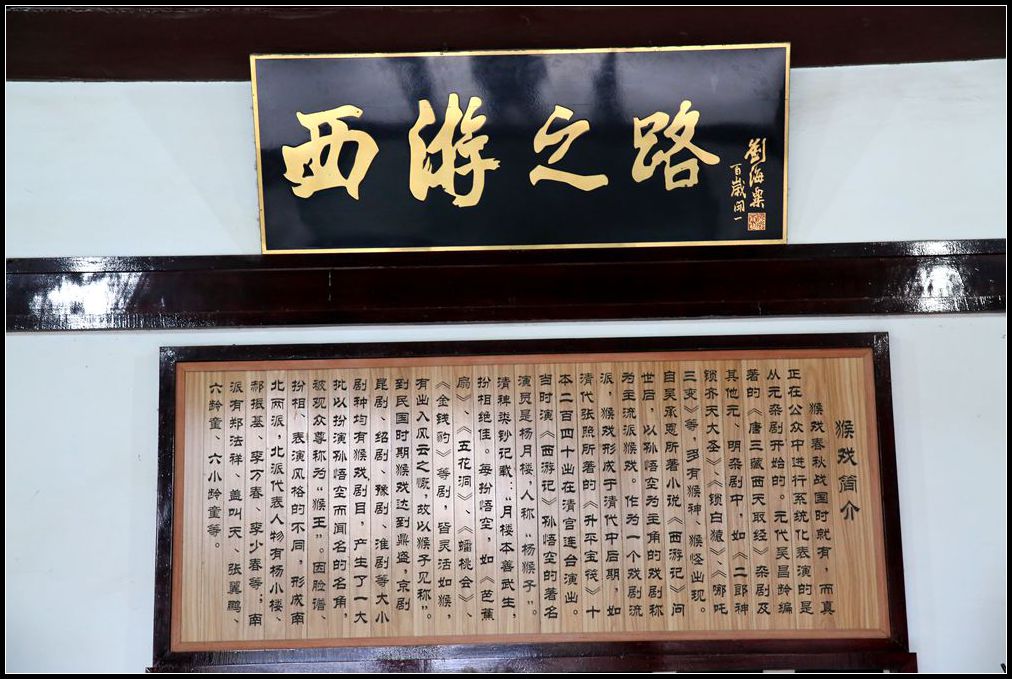 西游之路
劉海粟
百歲開一
猴戏简介
猴戏春秋战国时就有，而真
正在公众中进行系统化表演的是
从元杂剧开始的。元代吴昌龄编
著的《唐三藏西天取经》杂剧及
其他元、明杂剧中，如《二郎神
锁齐天大圣》、《锁白猿》、《哪吒
三变》等，多有猴神、猴怪出现。
自吴承恩所著小说《西游记》问
世后，以孙悟空为主角的戏剧称
为主流派猴戏。作为一个戏剧流
派，猴戏形成于清代中后期，如
清代张照所著的《升平宝筏》十
本二百四十出在清宫连台演出。
当时演《西游记》孙悟空的著名
演员是杨月楼，人称“杨猴子”。
清稗类钞记载：“月楼本善武生，
扮相绝佳。每扮悟空，如《芭蕉
扇》、《五花洞》、《蟠桃会》、
《金钱豹》等剧，皆灵活如猴，
有出入风云之慨，故以猴子见称”。
到民国时期猴戏达到鼎盛，京剧
昆剧、绍剧、豫剧、淮剧等大小
剧种均有猴戏剧目，产生了一大
批以扮演孙悟空而闻名的名角，
被观众尊称为“猴王”。因脸谱、
扮相、表演风格的不同，形成南
北两派，北派代表人物有杨小楼、
郝振基、李万春、李少春等；南
派有郑法祥、盖叫天、张翼鹏、
六龄童、六小龄童等。